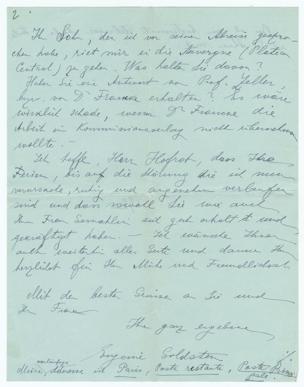 2
Ihr Sohn, der ich vor seiner Abreise gespro-
chen habe, riet mir in die Auvergne (Plateau
Central) zu gehen. Was halten Sie davon?
Haben Sie eine Antwort von Prof. Geller,
bzw. von Dr Francke erhalten? Es wäre
wirklich schade, wenn Dr Francke die
Arbeit im Kommissionsverlag nicht übernehmen
wollte. –
Ich hoffe, Herr Hofrat, dass Ihre
Ferien, bis auf die Störung die ich
ruhig und angenehm verlaufen
sind und dass sowohl Sie wie auch
Ihre Frau Gemahlin sich gut erholt &
gekräftigt haben – Ich wünsche Ihnen
auch weiterhin alles Gute und danke Ihnen
herzlichst für Ihre Mühe und Freundlichkeit
Mit den besten Grüssen an Sie und
Ihre Frau
Ihre ganz ergebene
Eugenie Goldstern
Meine Adresse in Paris, Poste restante,